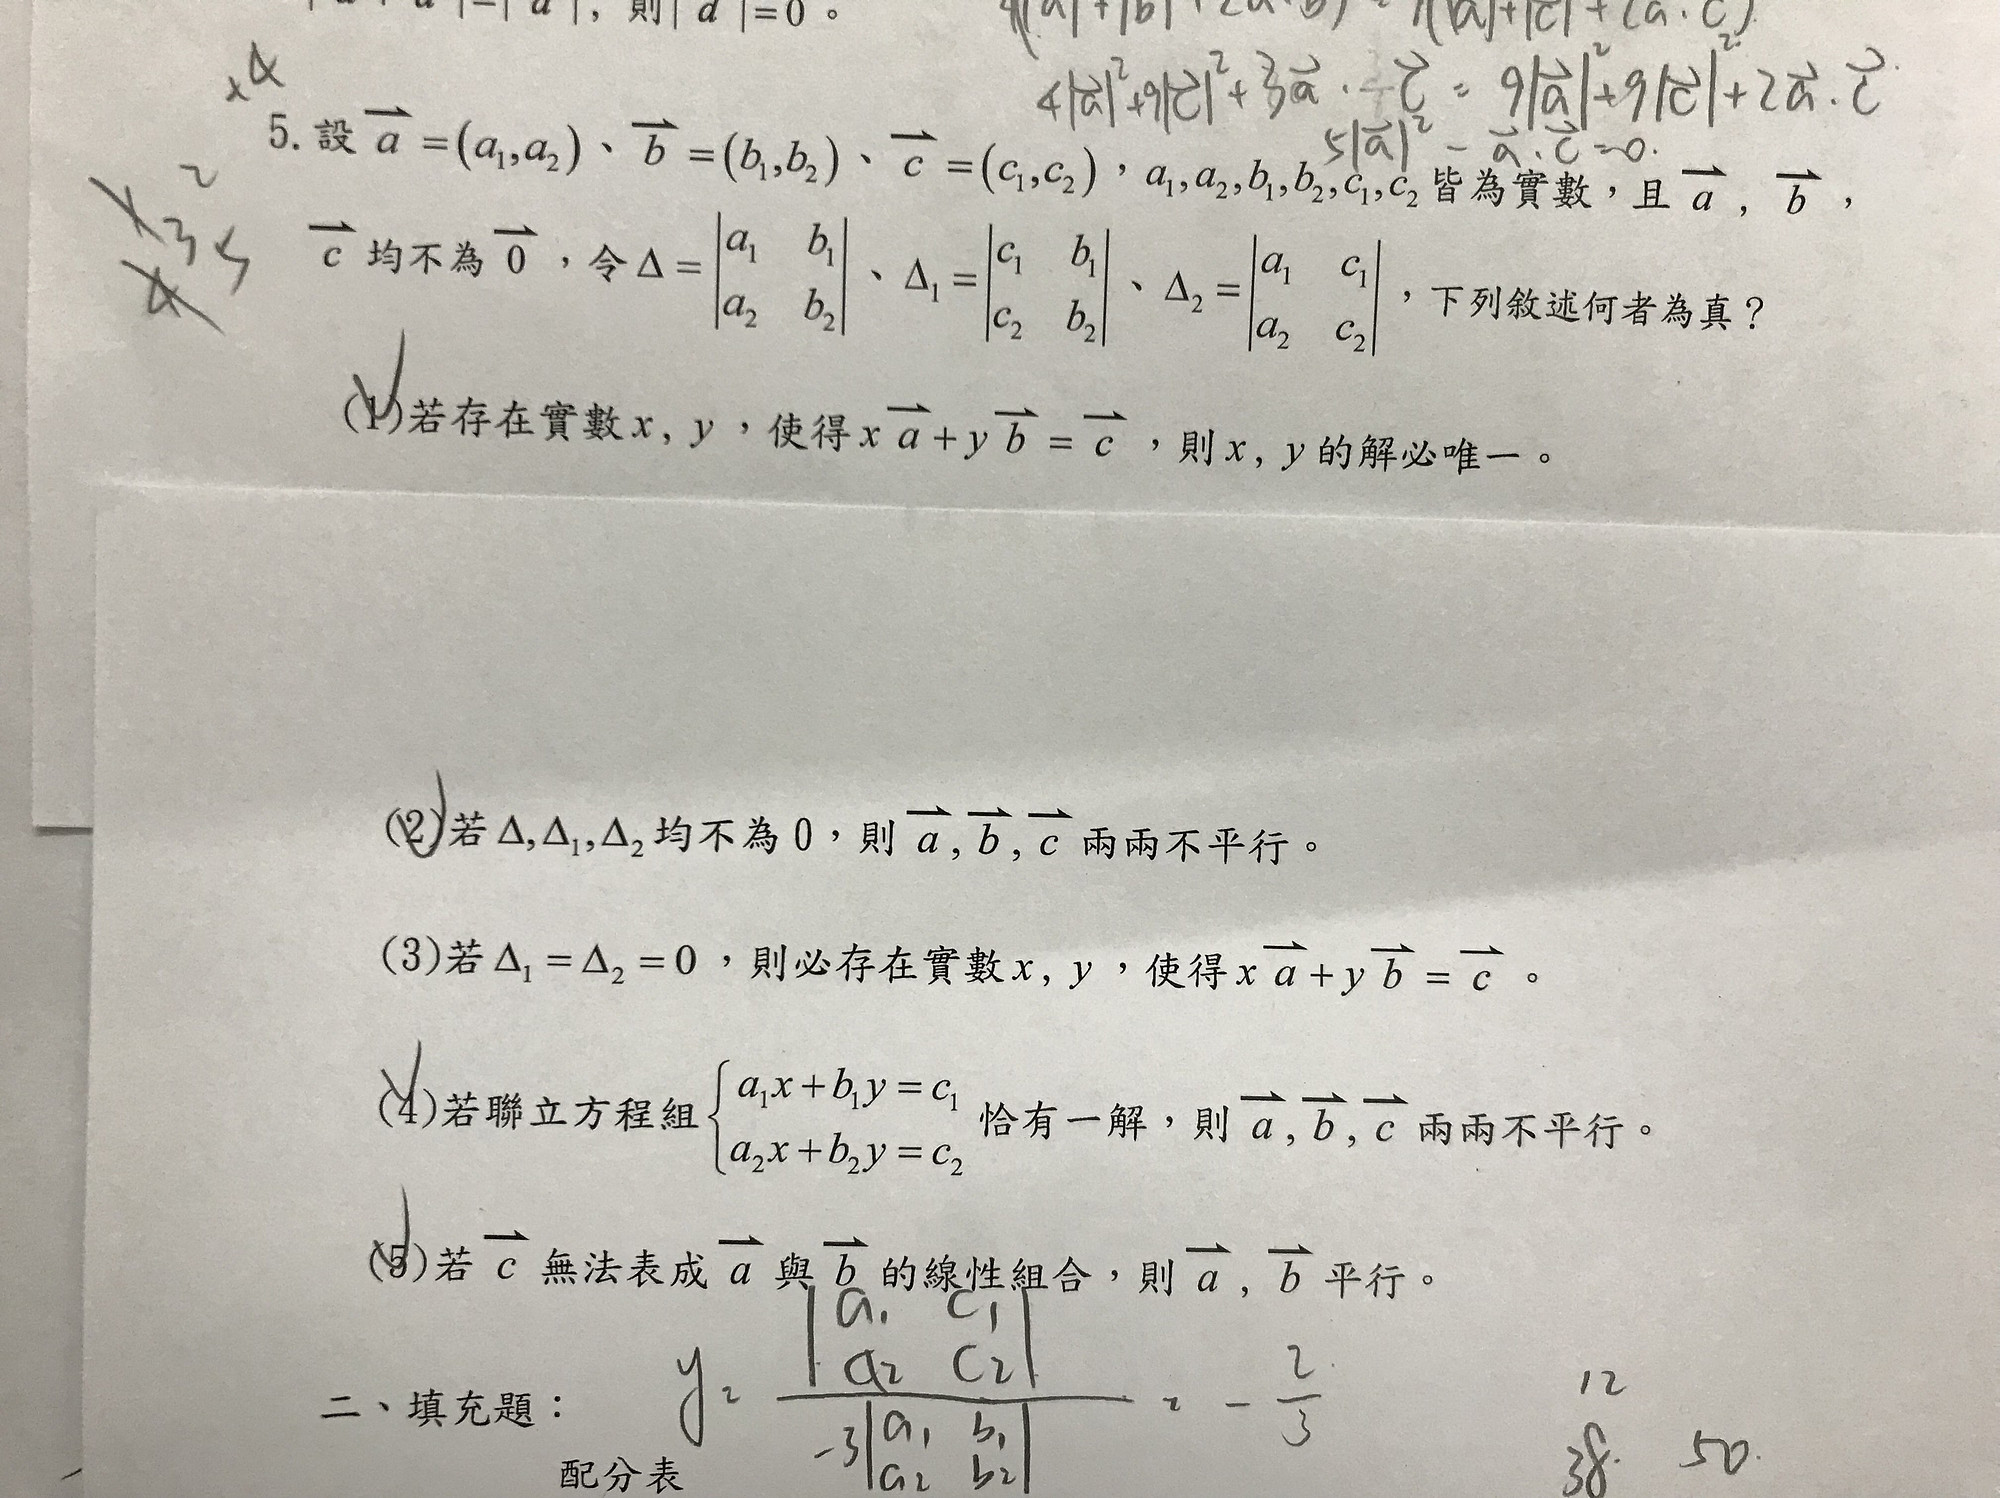 則|d|=0。
4|a⃗|²+9|c⃗|²+3a⃗·c⃗=9|a⃗|²+9|c⃗|²+2a⃗·c⃗
5|a⃗|²-a⃗·c⃗=0.
x4
5.設 a⃗=(a₁,a₂)、b⃗=(b₁,b₂)、c⃗=(c₁,c₂),a₁,a₂,b₁,b₂,c₁,c₂皆為實數,且 a⃗, b⃗,
2
3 5
4
c⃗ 均不為 0⃗,令 Δ=|a₁ b₁; a₂ b₂|、Δ₁=|c₁ b₁; c₂ b₂|、Δ₂=|a₁ c₁; a₂ c₂|,下列敘述何者為真?
(1)若存在實數 x, y,使得 x a⃗+y b⃗=c⃗,則 x, y 的解必唯一。
(2)若 Δ,Δ₁,Δ₂ 均不為 0,則 a⃗, b⃗, c⃗ 兩兩不平行。
(3)若 Δ₁=Δ₂=0,則必存在實數 x, y,使得 x a⃗+y b⃗=c⃗。
(4)若聯立方程組{a₁x+b₁y=c₁; a₂x+b₂y=c₂ 恰有一解,則 a⃗, b⃗, c⃗ 兩兩不平行。
(5)若 c⃗ 無法表成 a⃗ 與 b⃗ 的線性組合,則 a⃗, b⃗ 平行。
y=|a₁ c₁; a₂ c₂|/-3|a₁ b₁; a₂ b₂|=-2/3
12
二、填充題:
38. 50.
配分表